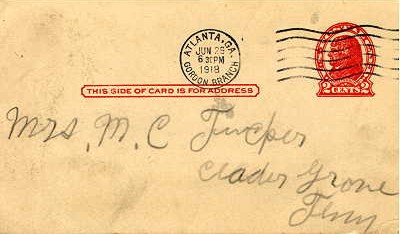 ATLANTA, GA.
JUN 26
6 30 PM
1918
GORDON BRANCH
2 CENTS 2
THIS SIDE OF CARD IS FOR ADDRESS
Mrs. M. C
Grove
Tenn